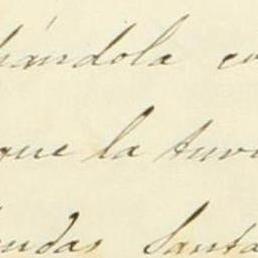 hándola co
que la tuvi
endas Santa